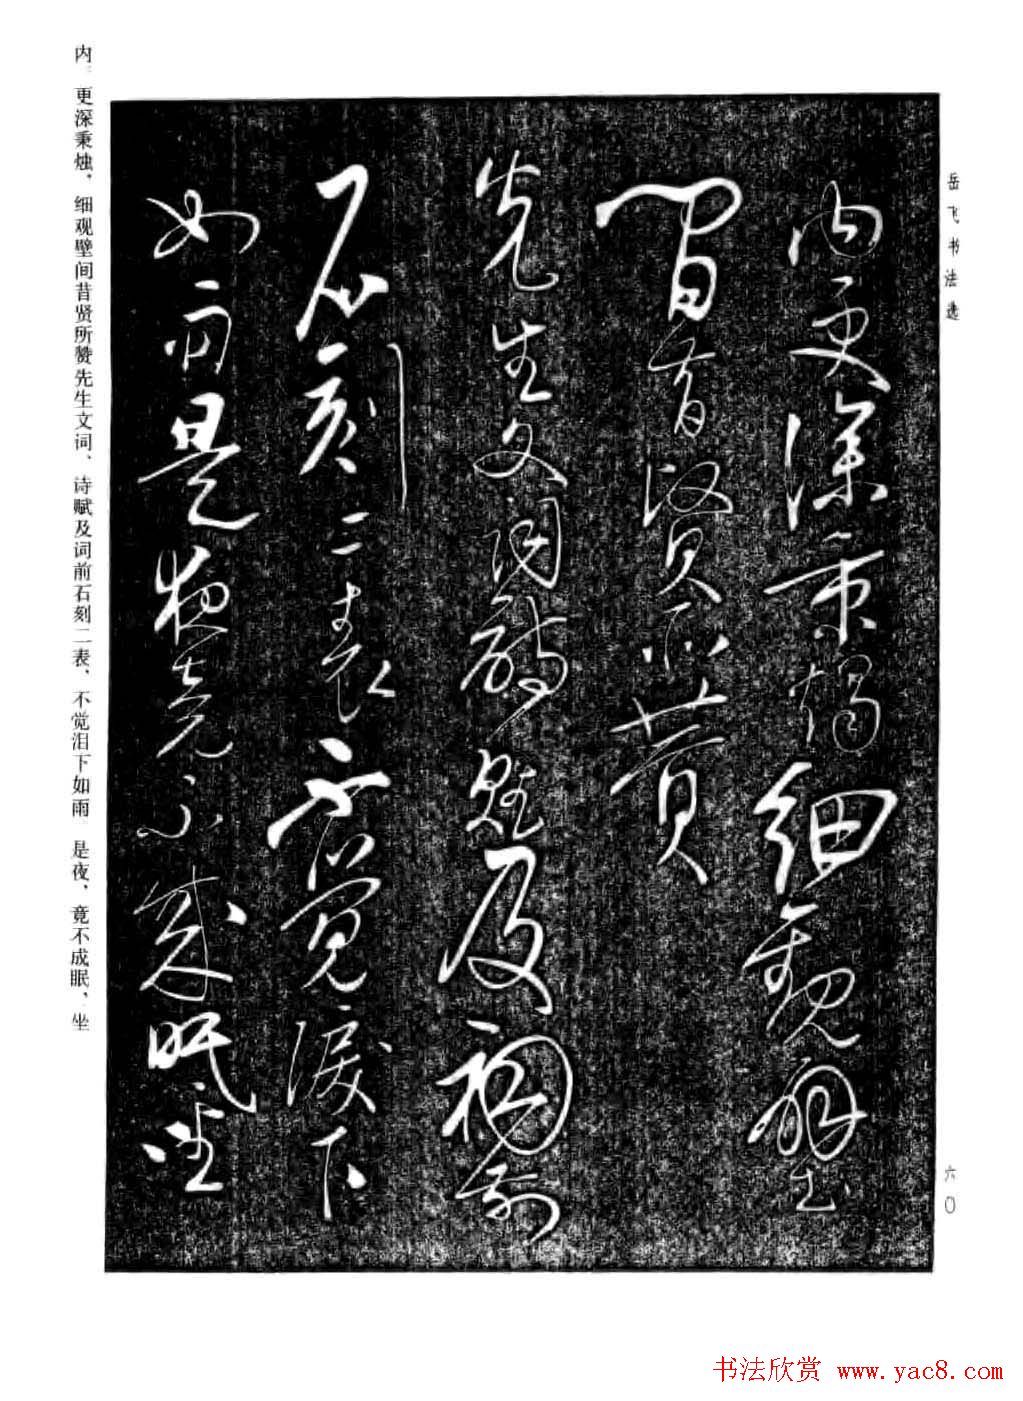 岳飞书法选
内更深秉烛细观壁
间昔贤所赞
先生文词诗赋及祠前
石刻二表不觉泪下
如雨是夜竟不成眠坐
内、更深秉烛，细观壁间昔贤所赞先生文词、诗赋及词前石刻二表、不觉泪下如雨 是夜，竟不成眠，坐
六〇
书法欣赏 www.yac8.com